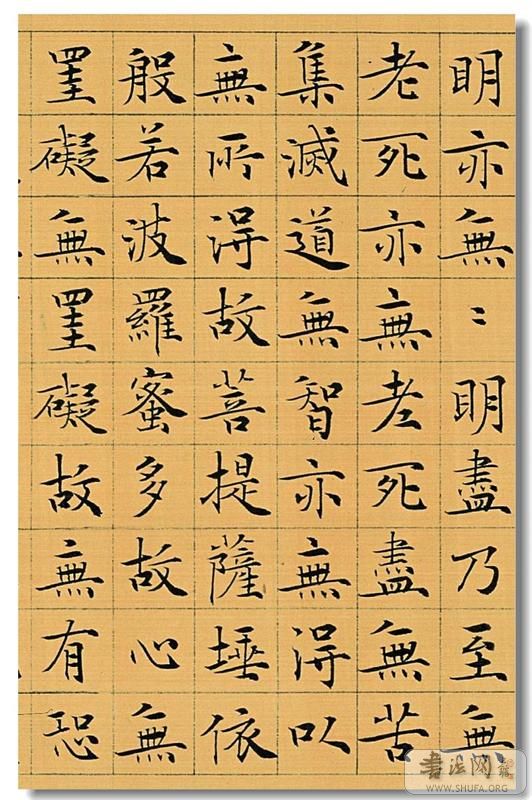 明亦無〻明盡乃至無
老死亦無老死盡無苦
集滅道無智亦無得以
無所得故菩提薩埵依
般若波羅蜜多故心無
罣礙無罣礙故無有恐
書法网
WWW.SHUFA.ORG